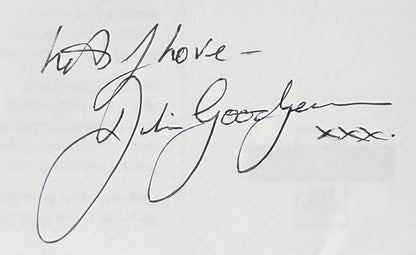 Lots of love –
Julie Goodyear
xxx.